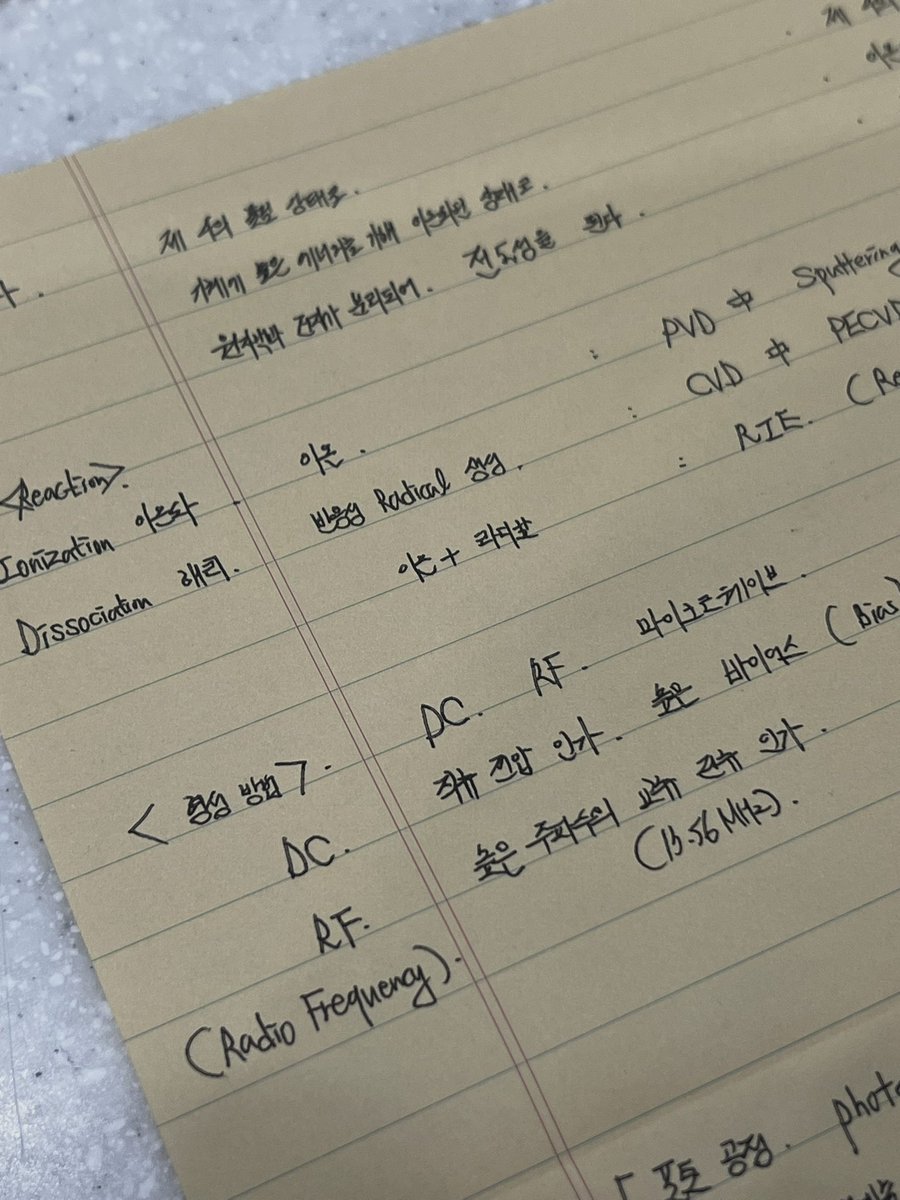 제 4의
이온
제 4의 물질 상태로.
기체에 높은 에너지를 가해 이온화된 상태로.
원자핵과 전자가 분리되어. 전도성을 띈다.
: PVD 中 Sputtering
: CVD 中 PECVD
: RIE. (Re
<Reaction>.
Ionization 이온화 - 이온.
Dissociation 해리. 반응성 Radical 생성.
이온 + 라디칼
<형성 방법>. DC. RF. 마이크로웨이브.
DC. 직류 전압 인가. 높은 바이어스 (Bias)
RF. 높은 주파수의 교류 전류 인가.
(Radio Frequency). (13.56 MHz).
「포토 공정. photo